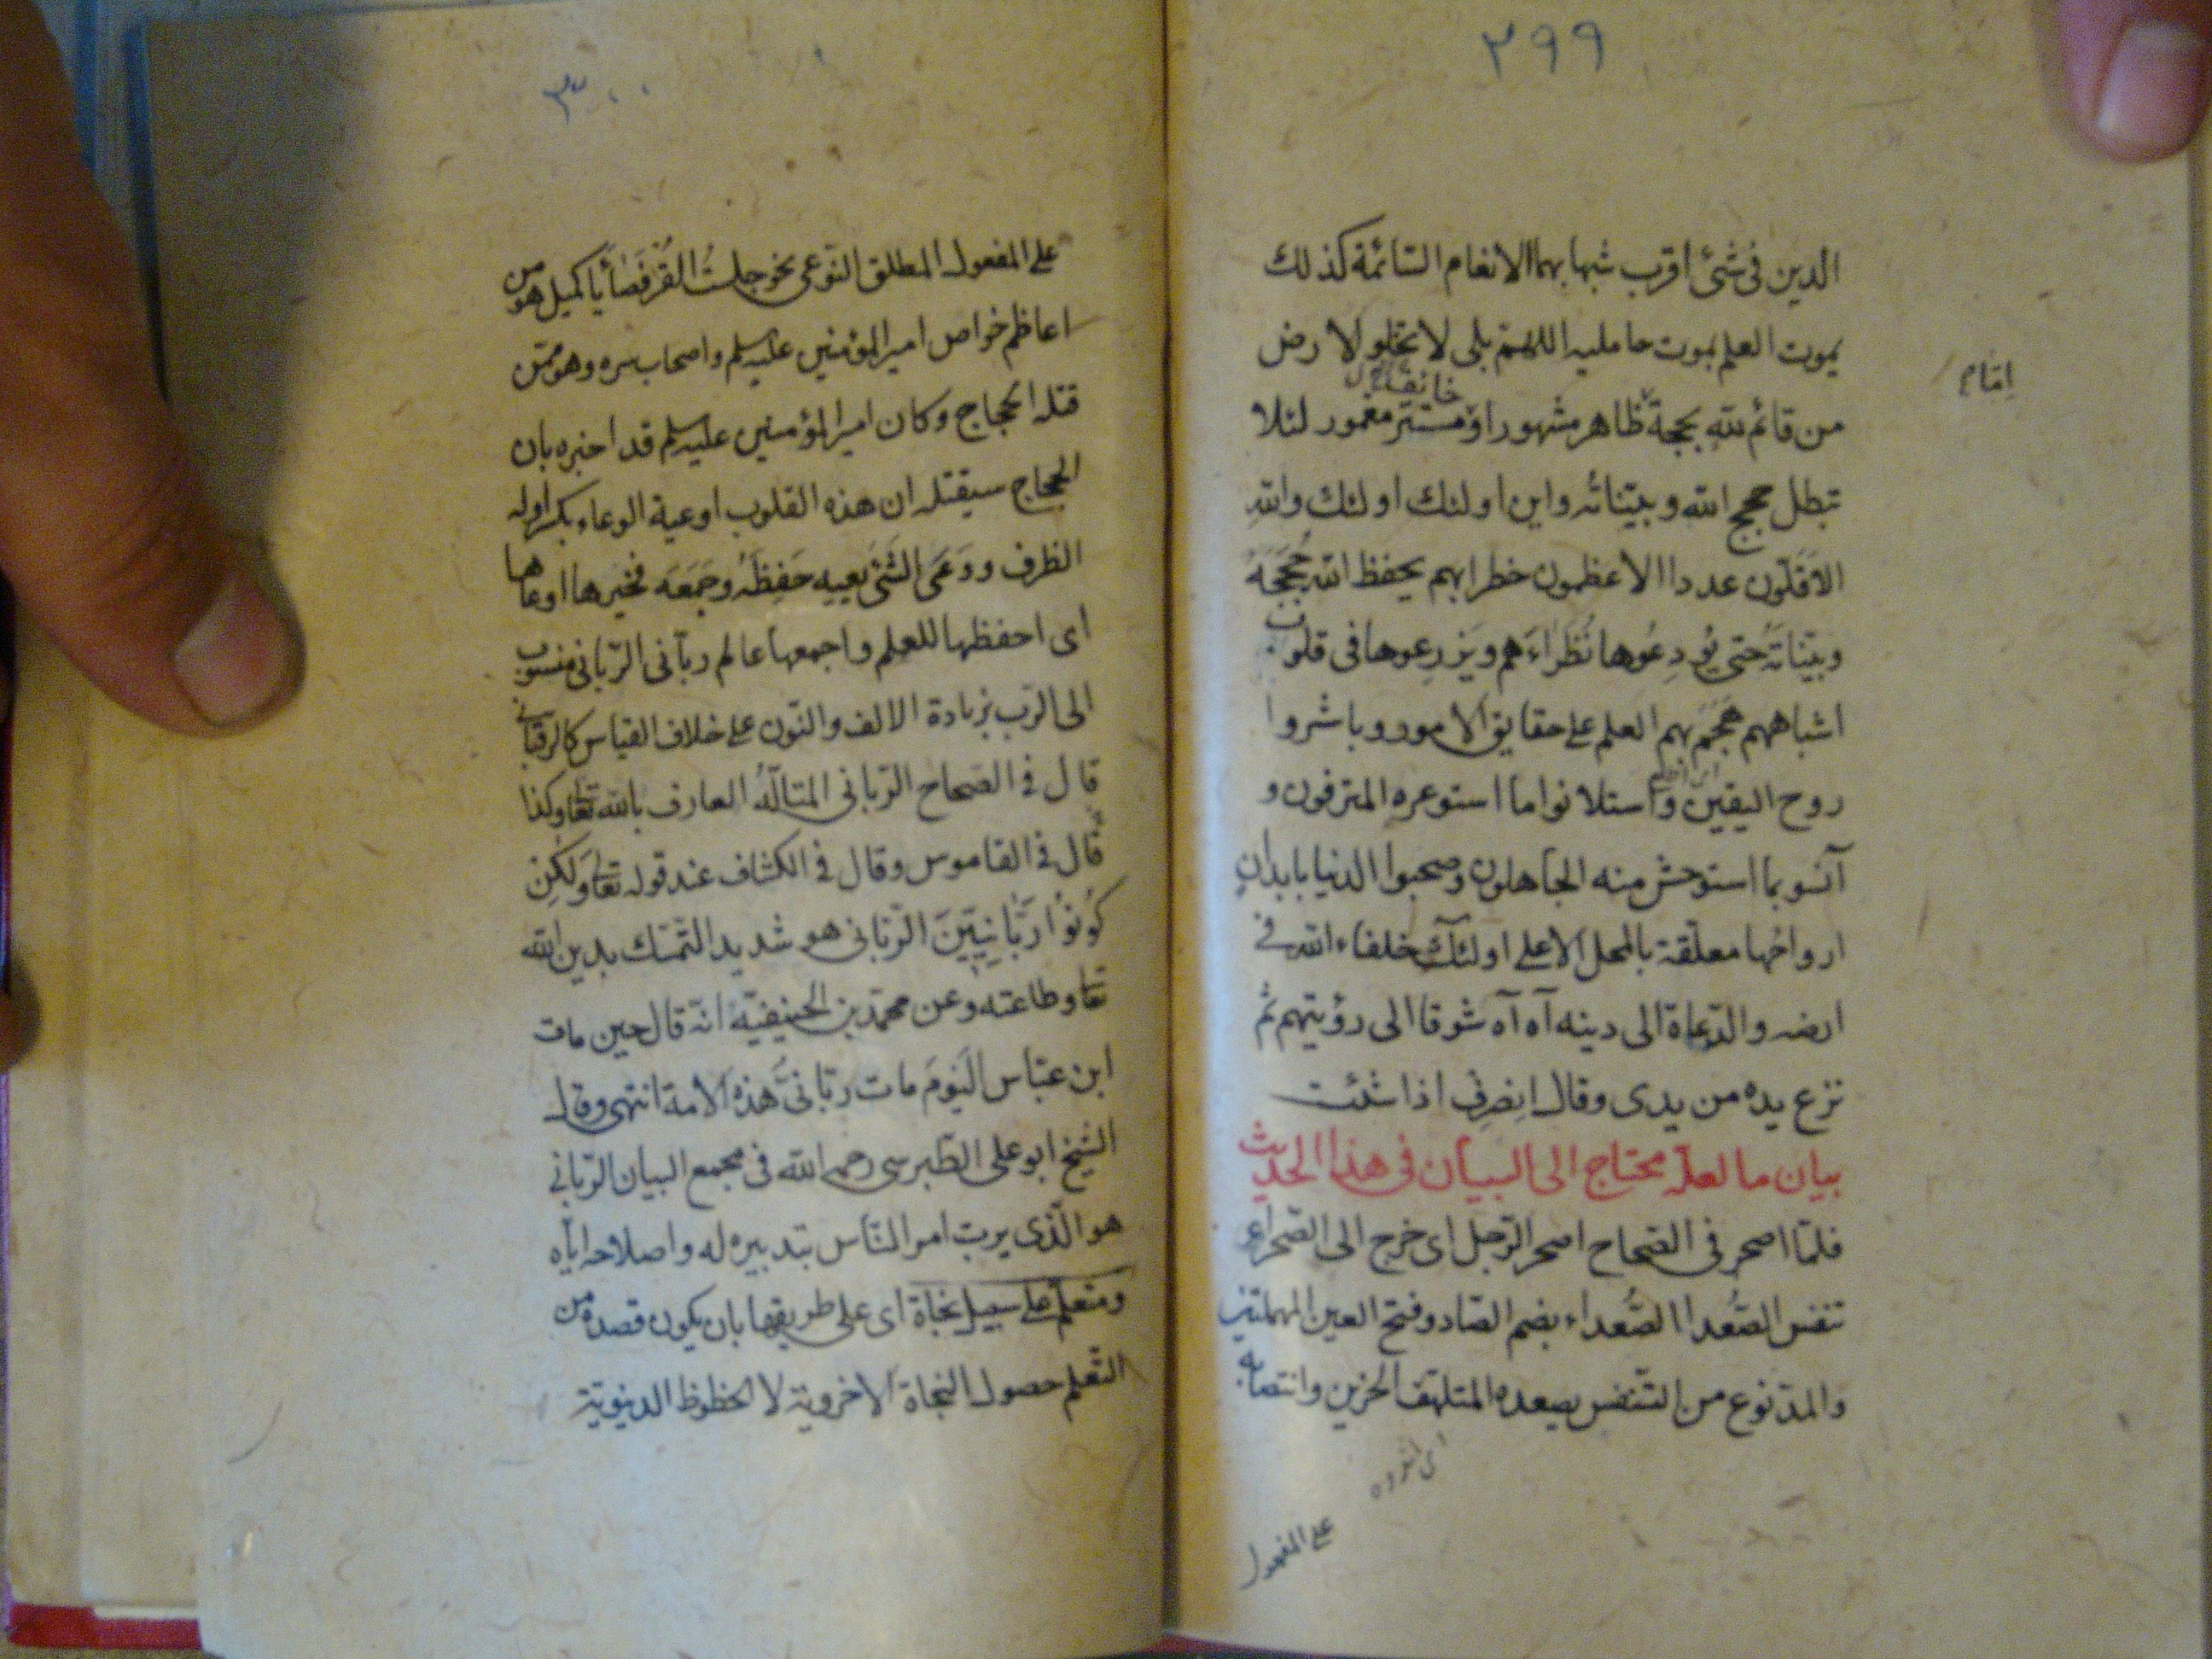 ٢٩٩
الدين في شئ اقرب شبها بهما الانعام السائمة كذلك
يموت العلم بموت حامليه اللهم بلى لا تخلو الارض
امّا
من قائم لله بحجة ظاهر مشهور او مستتر مغمور لئلا
خائف
تبطل حجج الله وبيناته واين اولئك اولئك والله
الاقلّون عددا الاعظمون خطرا بهم يحفظ الله حُجَجَهُ
وبيّناتَهُ حتى يُودِعُوها نُظَراءَهم ويَزرِعوها في قلوب
اشباههم هَجَمَ بهم العلم على حقايق الامور وباشروا
روح اليقين واستلانوا ما استوعره المترفون و
آنسو بما استوحش منه الجاهلون وصحبوا الدنيا بابدانٍ
ارواحُها معلّقة بالمحل الاعلى اولئك خلفاء الله في
ارضه والدّعاة الى دينه آه آه شوقا الى رؤيتهم ثم
نزع يده من يدى وقال اِنصَرِف اذا شئت
بيان ما لعلّه محتاج الى البيان في هذا الحديث
فلمّا اصحر في الصّحاح اصحر الرّجل اى خرج الى الصّحراء و
تنفس الصُّعدا الصُّعداء بضم الصّاد وفتح العين المهملتين
والمدّ نوع من التّنفس يصعده المتلهّف الحزين وانتصابه
على المفعول
٣٠٠
على المفعول المطلق النّوعى نحو جلستُ القُرْفَصٰاءَ يا كميل هو من
اعاظم خواص امير المؤمنين عليه سلم واصحاب سره وهو ممّن
قتله الحجاج وكان امير المؤمنين عليه سلم قد اخبره بان
الحجاج سيقتله ان هذه القلوب اوعية الوعاء بكسر اوله
الظرف ووَعَى الشّئ يعيه حَفِظَهُ وجَمَعَه فخيرها اوعاها
اى احفظها للعلم واجمعها عالم ربّانى الرّبانى منسوب
الى الرّب بزيادة الالف والنّون على خلاف القياس كالرقبانى
قال في الصحاح الرّبانى المتألّهُ العارف بالله تعالى وكذا
قال في القاموس وقال في الكشاف عند قوله تعالى وَلٰكِنْ
كُونُوْا رَبَّانِيّينَ الرّبّانى هو شديد التّمسّك بدين الله
تعالى وطاعته وعن محمّد بن الحنيفيّة انّه قال حين مات
ابن عبّاس اليَومَ مات ربّانىّ هذه الامة انتهى وقال
الشيخ ابو على الطّبرسى رحمه الله في مجمع البيان الرّبانى
هو الّذى يربّ امر النّاس بتدبيره له واصلاحه ايّاه
ومتعلّم على سبيل نجاة اى على طريقها بان يكون قصده من
التّعلم حصول النجاة الاخروية لا الحظوظ الدنيويّة